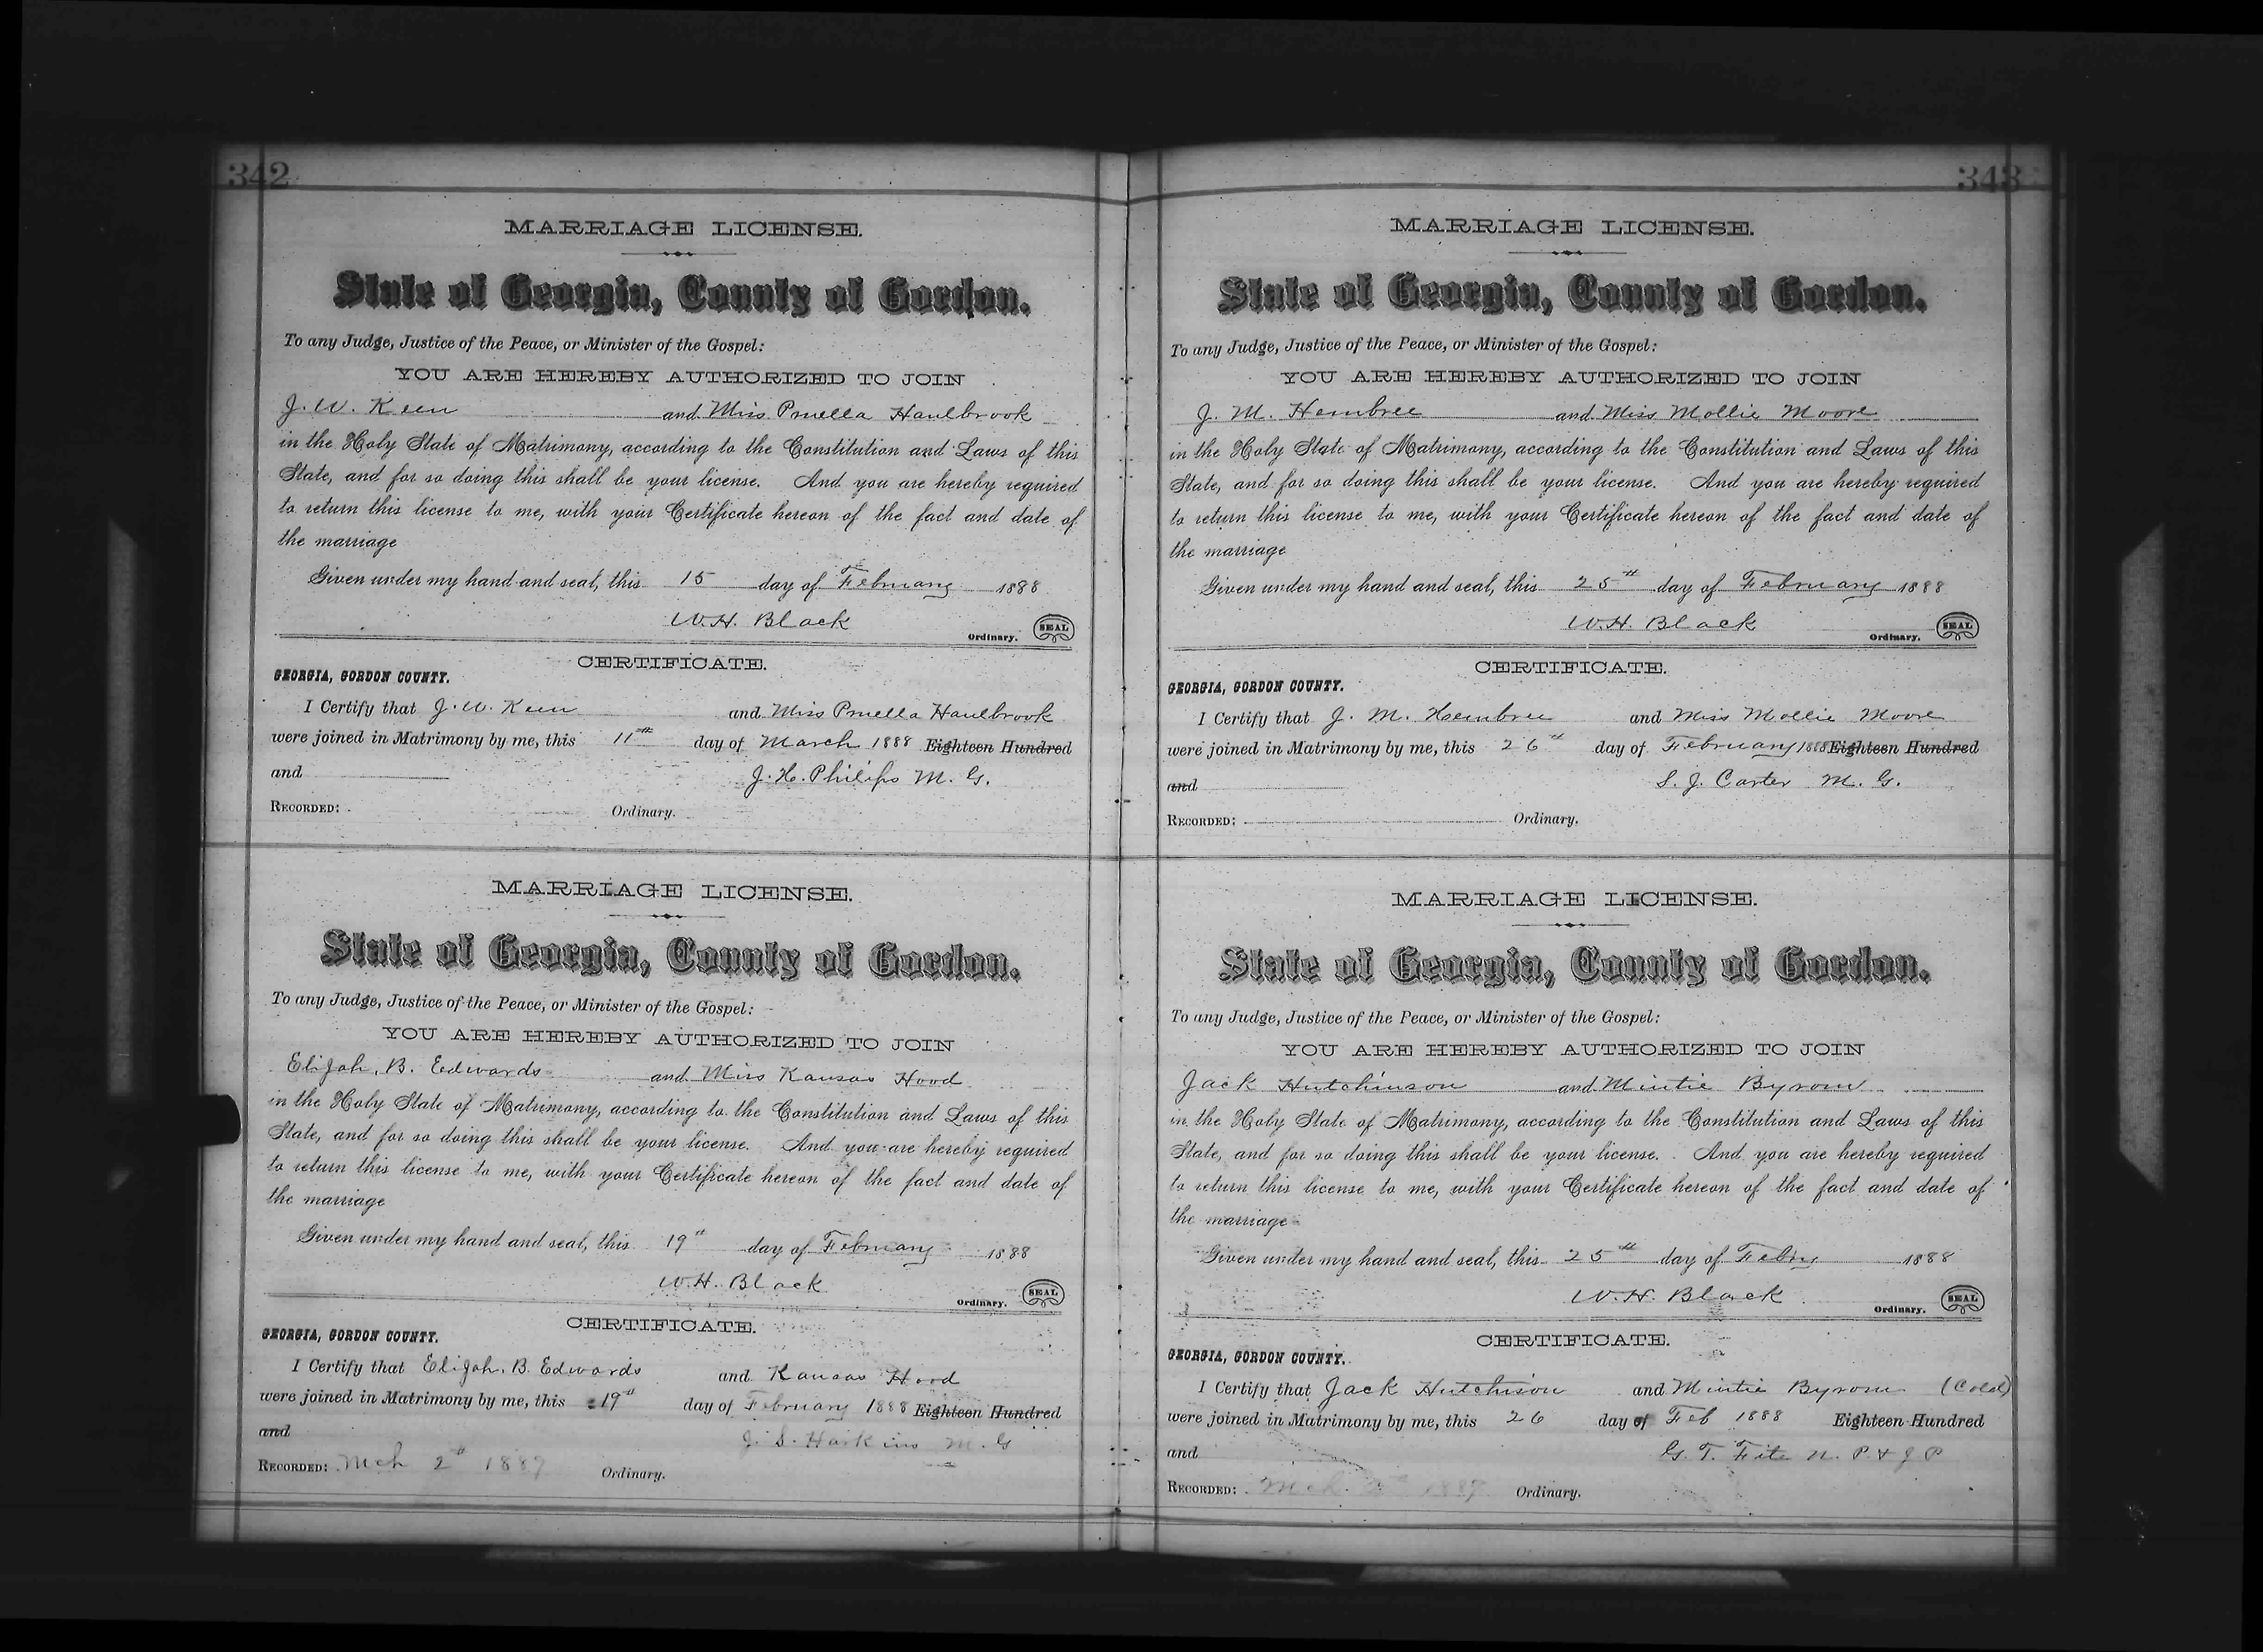 342
MARRIAGE LICENSE.
State of Georgia, County of Gordon.
To any Judge, Justice of the Peace, or Minister of the Gospel:
YOU ARE HEREBY AUTHORIZED TO JOIN
J. W. Keen and Miss Pruella Haulbrook
in the Holy State of Matrimony, according to the Constitution and Laws of this
State, and for so doing this shall be your license. And you are hereby required
to return this license to me, with your Certificate hereon of the fact and date of
the marriage
Given under my hand and seal, this 15 day of February 1888
W. H. Black
Ordinary. SEAL
CERTIFICATE.
GEORGIA, GORDON COUNTY.
I Certify that J. W. Keen and Miss Pruella Haulbrook
were joined in Matrimony by me, this 11th day of March 1888 Eighteen Hundred
and J. H. Philips M. G.
RECORDED: Ordinary.
MARRIAGE LICENSE.
State of Georgia, County of Gordon.
To any Judge, Justice of the Peace, or Minister of the Gospel:
YOU ARE HEREBY AUTHORIZED TO JOIN
Elijah. B. Edwards and Miss Kansas Hood
in the Holy State of Matrimony, according to the Constitution and Laws of this
State, and for so doing this shall be your license. And you are hereby required
to return this license to me, with your Certificate hereon of the fact and date of
the marriage
Given under my hand and seal, this 19th day of February 1888
W. H. Black
Ordinary. SEAL
CERTIFICATE.
GEORGIA, GORDON COUNTY.
I Certify that Elijah. B. Edwards and Kansas Hood
were joined in Matrimony by me, this 19th day of February 1888 Eighteen Hundred
and J. S. Harkins M. G
RECORDED: Mch 2nd 1889 Ordinary.
343
MARRIAGE LICENSE.
State of Georgia, County of Gordon.
To any Judge, Justice of the Peace, or Minister of the Gospel:
YOU ARE HEREBY AUTHORIZED TO JOIN
J. M. Hembree and Miss Mollie Moore
in the Holy State of Matrimony, according to the Constitution and Laws of this
State, and for so doing this shall be your license. And you are hereby required
to return this license to me, with your Certificate hereon of the fact and date of
the marriage
Given under my hand and seal, this 25th day of February 1888
W. H. Black
Ordinary. SEAL
CERTIFICATE.
GEORGIA, GORDON COUNTY.
I Certify that J. M. Hembree and Miss Mollie Moore
were joined in Matrimony by me, this 26th day of February 1888 Eighteen Hundred
and S. J. Carter M. G.
RECORDED: Ordinary.
MARRIAGE LICENSE.
State of Georgia, County of Gordon.
To any Judge, Justice of the Peace, or Minister of the Gospel:
YOU ARE HEREBY AUTHORIZED TO JOIN
Jack Hutchinson and Mintie Byrom
in the Holy State of Matrimony, according to the Constitution and Laws of this
State, and for so doing this shall be your license. And you are hereby required
to return this license to me, with your Certificate hereon of the fact and date of
the marriage
Given under my hand and seal, this 25th day of Febry 1888
W. H. Black
Ordinary. SEAL
CERTIFICATE.
GEORGIA, GORDON COUNTY.
I Certify that Jack Hutchison and Mintie Byrom (Cold)
were joined in Matrimony by me, this 26 day of Feb 1888 Eighteen Hundred
and G. T. Fite N. P. & J P
RECORDED: Mch. 1889 Ordinary.